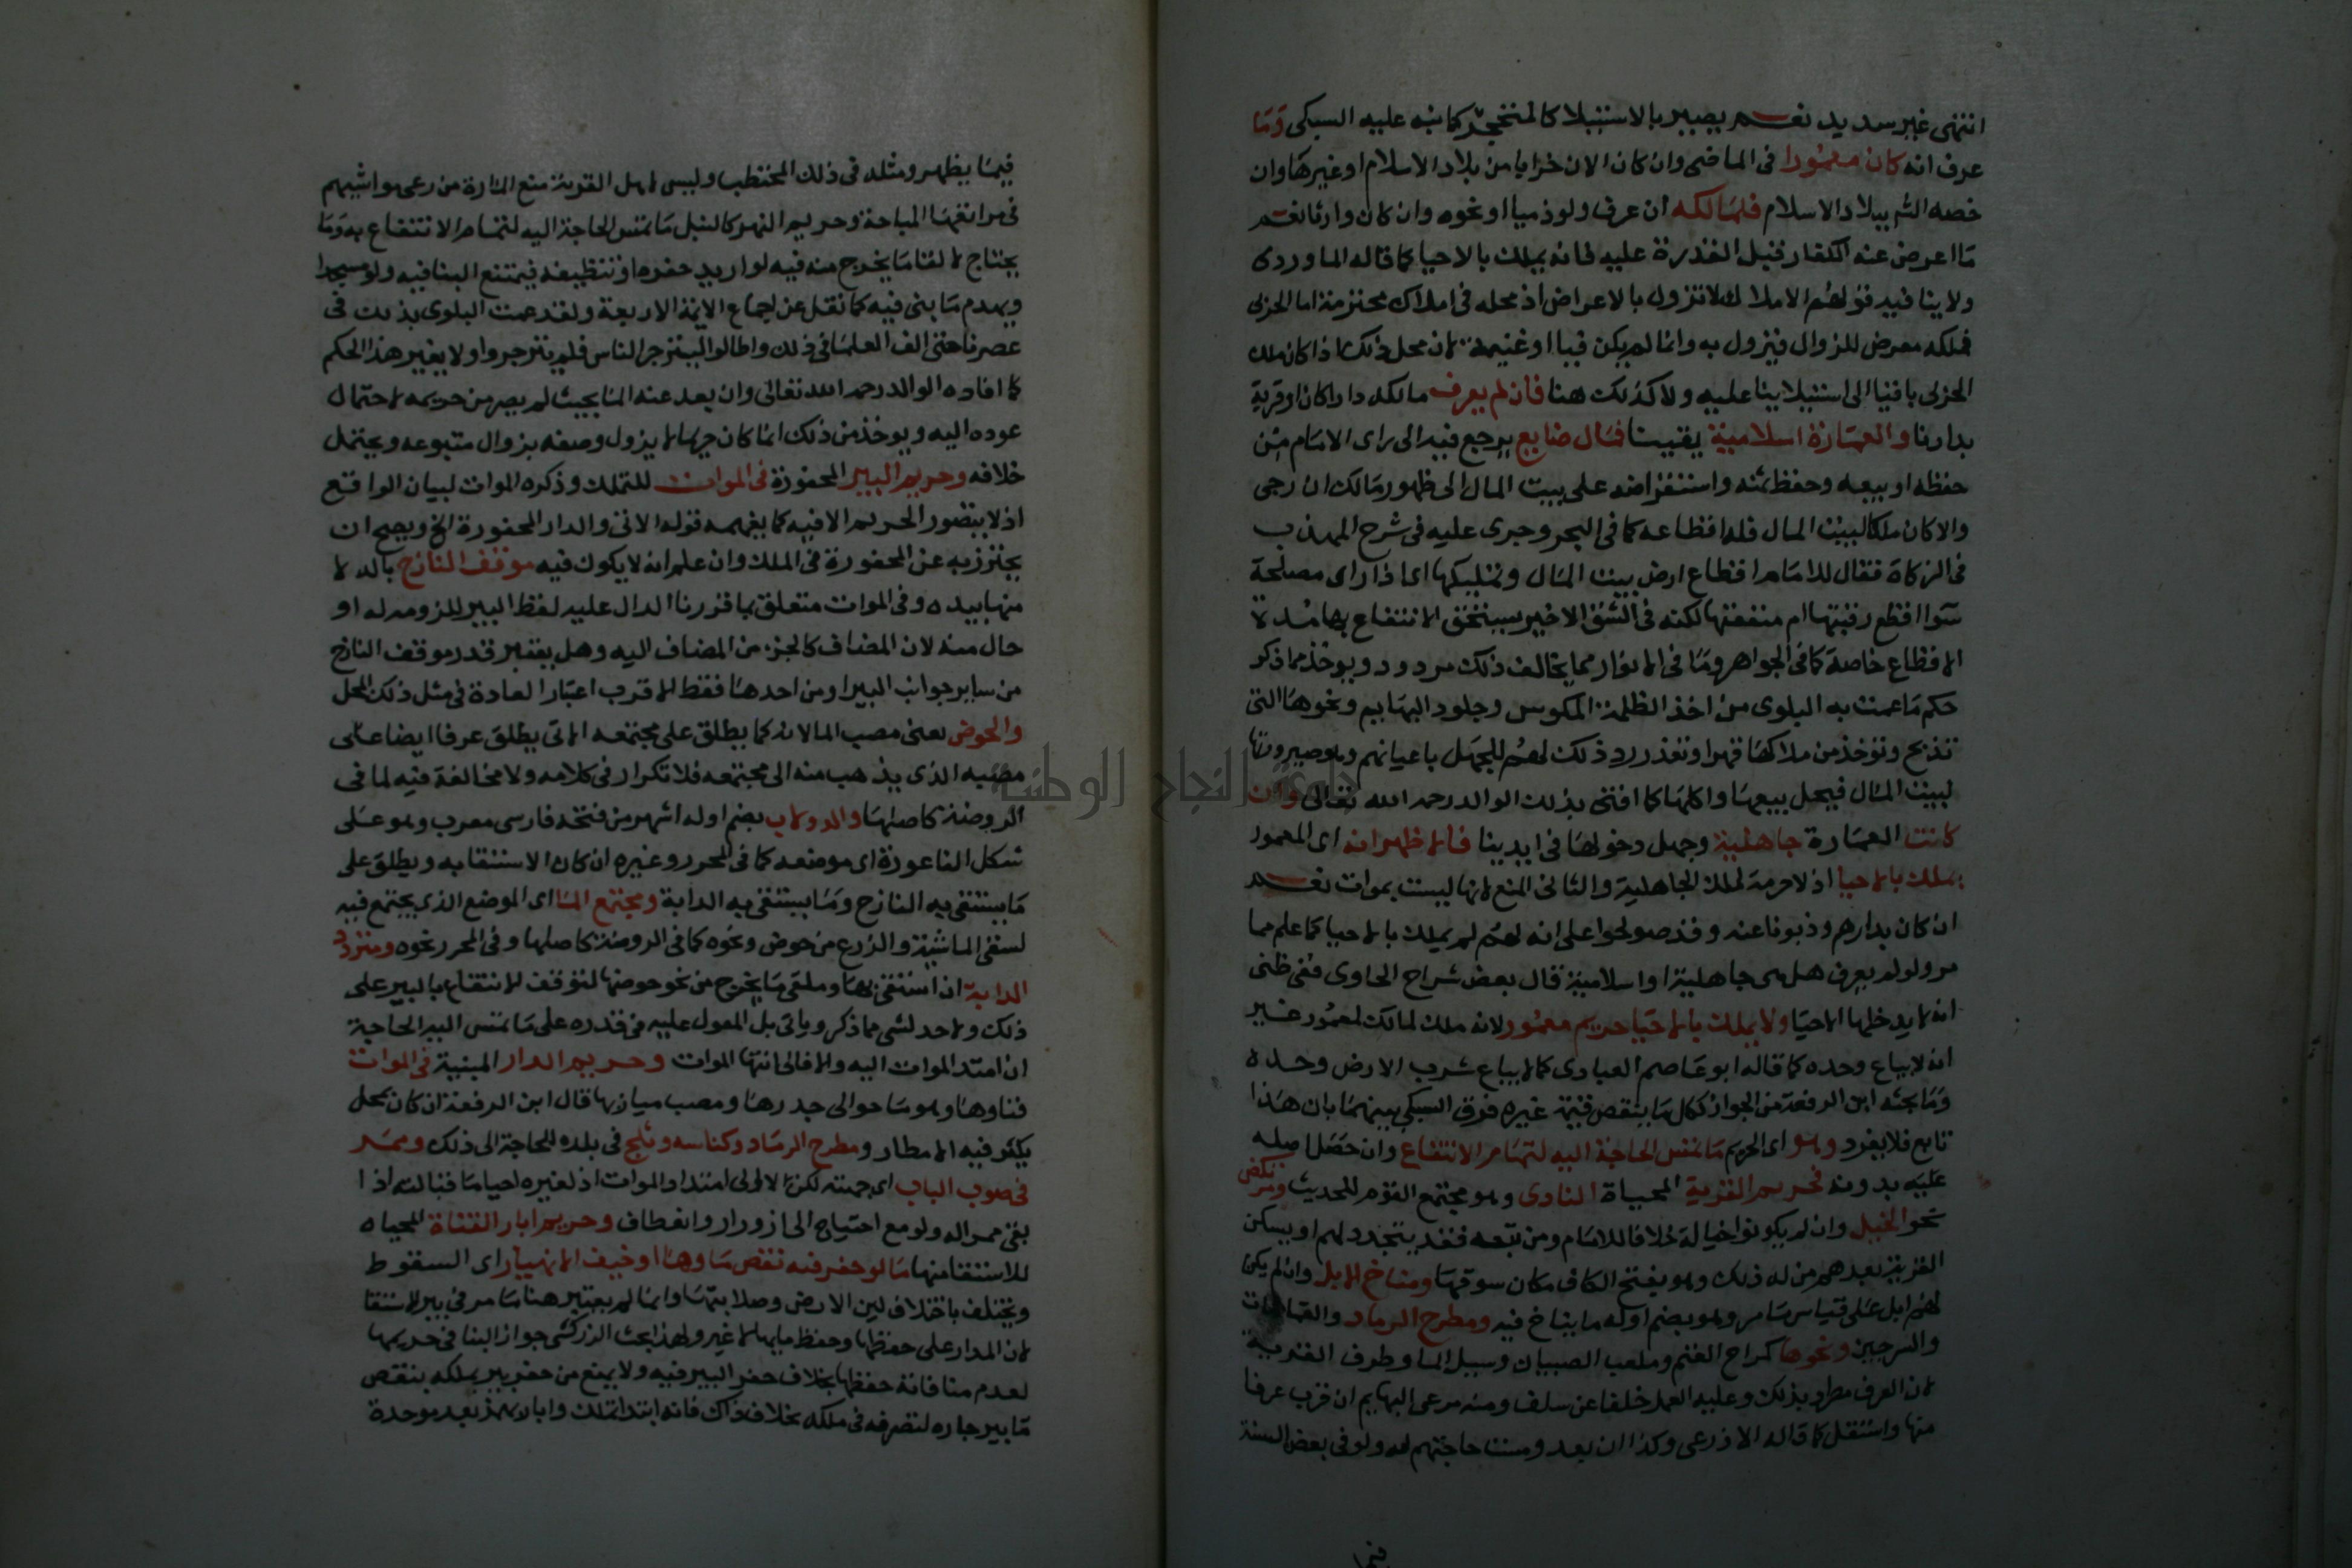 انتهى غير سديد نعم يصير بالاستيلا كالمتحجر كما نبه عليه السبكى وما
عرف انه كان معمورا فى الماضى وان كان الان خرابا من بلاد الاسلام او غيرها وان
خصه الشم ببلاد الاسلام فلمالكه ان عرف ولو ذميا او نحوه وان كان وارثا نعم
ما اعرض عنه الكفار قبل القدرة عليه فانه يملك بالاحيا كما قاله الماوردى
ولا ينافيه قولهم الاملاك لا تزول بالاعراض اذ محله فى املاك محترمة اما الحربى
فملكه معرض للزوال فيزول به وانما لم يكن فيا او غنيمة لان محل ذلك ما ذا كان ملك
الحربى باقيا الى استيلاينا عليه ولا كذلك هنا فان لم يعرف مالكه دارا كان او قرية
بدارنا والعمارة اسلامية يقينا فمال ضايع يرجع فيه الى راى الامام من
حفظه او بيعه وحفظ ثمنه واستقراضه على بيت المال الى ظهور مالك ان رجى
والا كان ملكا لبيت المال فله اقطاعه كما فى البحر وجرى عليه فى شرح المهذب
فى الزكاة فقال للامام اقطاع ارض بيت المال وتمليكها اى اذا راى مصلحة
سوا اقطع رقبتها ام منفعتها لكنه فى الشق الاخير يستحق الانتفاع بها مدة
الاقطاع خاصة كما فى الجواهر وما فى الانوار مما يخالف ذلك مردود ويوخذ مما ذكر
حكم ما عمت به البلوى من اخذ الظلمة المكوس وجلود البهايم ونحوها التى
تذبح وتوخذ من ملاكها قهرا وتعذر رد ذلك لهم للجهل باعيانهم وهو صيرورتها
لبيت المال فيحل بيعها واكلها كما افتى بذلك الوالد رحمه الله تعالى وان
كانت العمارة جاهلية وجهل دخولها فى ايدينا فالاظهر انه اى المعمور
يملك بالاحيا اذ لا حرمة لملك الجاهلية والثانى المنع لانها ليست بموات نعم
ان كان بدارهم وذبونا عنه وقد صولحوا على انه لهم لم يملك بالاحيا كما علم مما
مر ولو لم يعرف هل هى جاهلية او اسلامية قال بعض شراح الحاوى ففى ظنى
انه لا يدخلها الاحيا ولا يملك بالاحيا حريم معمور لانه ملك لمالك لمعمور غير
انه لا يباع وحده كما قاله ابو عاصم العبادى كما لا يباع شرب الارض وحده
وما بحثه ابن الرفعة من الجواز ككل ما ينقص قيمة غيره فرق السبكى بينهما بان هذا
تابع فلا يفرد وهو اى الحريم ما تمس الحاجة اليه لتمام الانتفاع وان حصل اصله
عليه بدونه فحريم القرية المحياة النادى وهو مجتمع القوم للحديث ومرتكض
نحو الخيل وان لم يكونوا خيالة خلافا للامام ومن تبعه فقد يتجدد لهم او يسكن
القرية بعدهم من له ذلك وهو بفتح الكاف مكان سوقها ومناخ الابل وان لم يكن
لهم ابل على قياس ما مر وهو بضم اوله ما يناخ فيه ومطرح الرماد والقمامات
والسرجين ونحوها كمراح الغنم وملعب الصبيان وسيل الما وطرف القرية
لان العرف مطرد بذلك وعليه العمل خلفا عن سلف ومنه مرعى البهايم ان قرب عرفا
منها واستقل كما قاله الاذرعى وكذا ان بعد ومست حاجتهم له ولو فى بعض السنة
فيما
فيما يظهر ومثله فى ذلك المحتطب وليس لاهل القرية منع المارة من رعى مواشيهم
فى مرافقها المباحة وحريم النهر كالنيل ما تمس الحاجة اليه لتمام الانتفاع به وما
يحتاج لالقا ما يخرج منه فيه لو اريد حفره او تنظيفه فيمتنع البنا فيه ولو مسجدا
ويهدم ما بنى فيه كما نقل عن اجماع الايمة الاربعة ولقد عمت البلوى بذلك فى
عصرنا حتى الف العلما فى ذلك واطالوا لينزجر الناس فلم ينزجروا ولا يغير هذا الحكم
كما افاده الوالد رحمه الله تعالى وان بعد عنه الما بحيث لم يصر من حريمه لاحتمال
عوده اليه ويوخذ من ذلك ان ما كان حريما لا يزول وصفه بزوال متبوعه ويحتمل
خلافه وحريم البير المحفورة فى الموات للتملك وذكره الموات لبيان الواقع
اذ لا يتصور الحريم الا فيه كما يفهمه قوله الاتى والدار المحفورة الخ ويصح ان
يحترز به عن المحفورة فى الملك وان علم انه لا يكون فيه موقف النازح بالدلا
منها بيده وفى الموات متعلق بما قررنا الدال عليه لفظ البير للزومه له او
حال منه لان المضاف كالجز من المضاف اليه وهل يعتبر قدر موقف النازح
من ساير جوانب البير او من احدها فقط الاقرب اعتبار العادة فى مثل ذلك المحل
والحوض يعنى مصب الما لانه كما يطلق على مجتمعه الاتى يطلق عرفا ايضا على
مصبه الذى يذهب منه الى مجتمعه فلا تكرار فى كلامه ولا مخالفة فيه لما فى
الروضة كاصلها والدولاب بضم اوله اشهر من فتحه فارسى معرب وهو على
شكل الناعورة اى موضعه كما فى المحرر وغيره ان كان الاستقا به ويطلق على
ما يستقى به النازح وما يستقى به الدابة ومجتمع الما اى الموضع الذى يجتمع فيه
لسقى الماشية والزرع من حوض ونحوه كما فى الروضة كاصلها وفى المحرر نحوه ومتردد
الدابة ان استقى بها وملقى ما يخرج من نحو حوضها لتوقف الانتفاع بالبير على
ذلك ولا حد لشى مما ذكر وياتى بل المعول عليه فى قدره على ما تمس اليه الحاجة
ان امتد الموات اليه والا فالى انتها الموات وحريم الدار المبنية فى الموات
فناوها وهو ما حوالى جدرها ومصب ميازبها قال ابن الرفعة ان كان بمحل
يكثر فيه الامطار ومطرح الرماد وكناسه وثلج فى بلده للحاجة الى ذلك وممر
فى صوب الباب اى جهته لكن لا الى امتداد الموات اذ لغيره احيا ما قبالته اذا
بقى ممر له ولو مع احتياج الى ازورار وانعطاف وحريم ابار القناة المحياه
للاستقا منها ما لو حفر فيه نقص ماوها او خيف الانهيار اى السقوط
ويختلف باختلاف لين الارض وصلابتها وانما لم يعتبر هنا ما مر فى بير الاستقا
لان المدار على حفظها وحفظ مايها لا غير ولهذا بحث الزركشى جواز البنا فى حريمها
لعدم منافاته حفظها بخلاف حفر البير فيه ولا يمنع من حفر بير بملكه ينقص
ما بير جاره لتصرفه فى ملكه بخلاف ذاك فانه ابتدا تملك وابار بعد موحدة
جامعة النجاح الوطنية